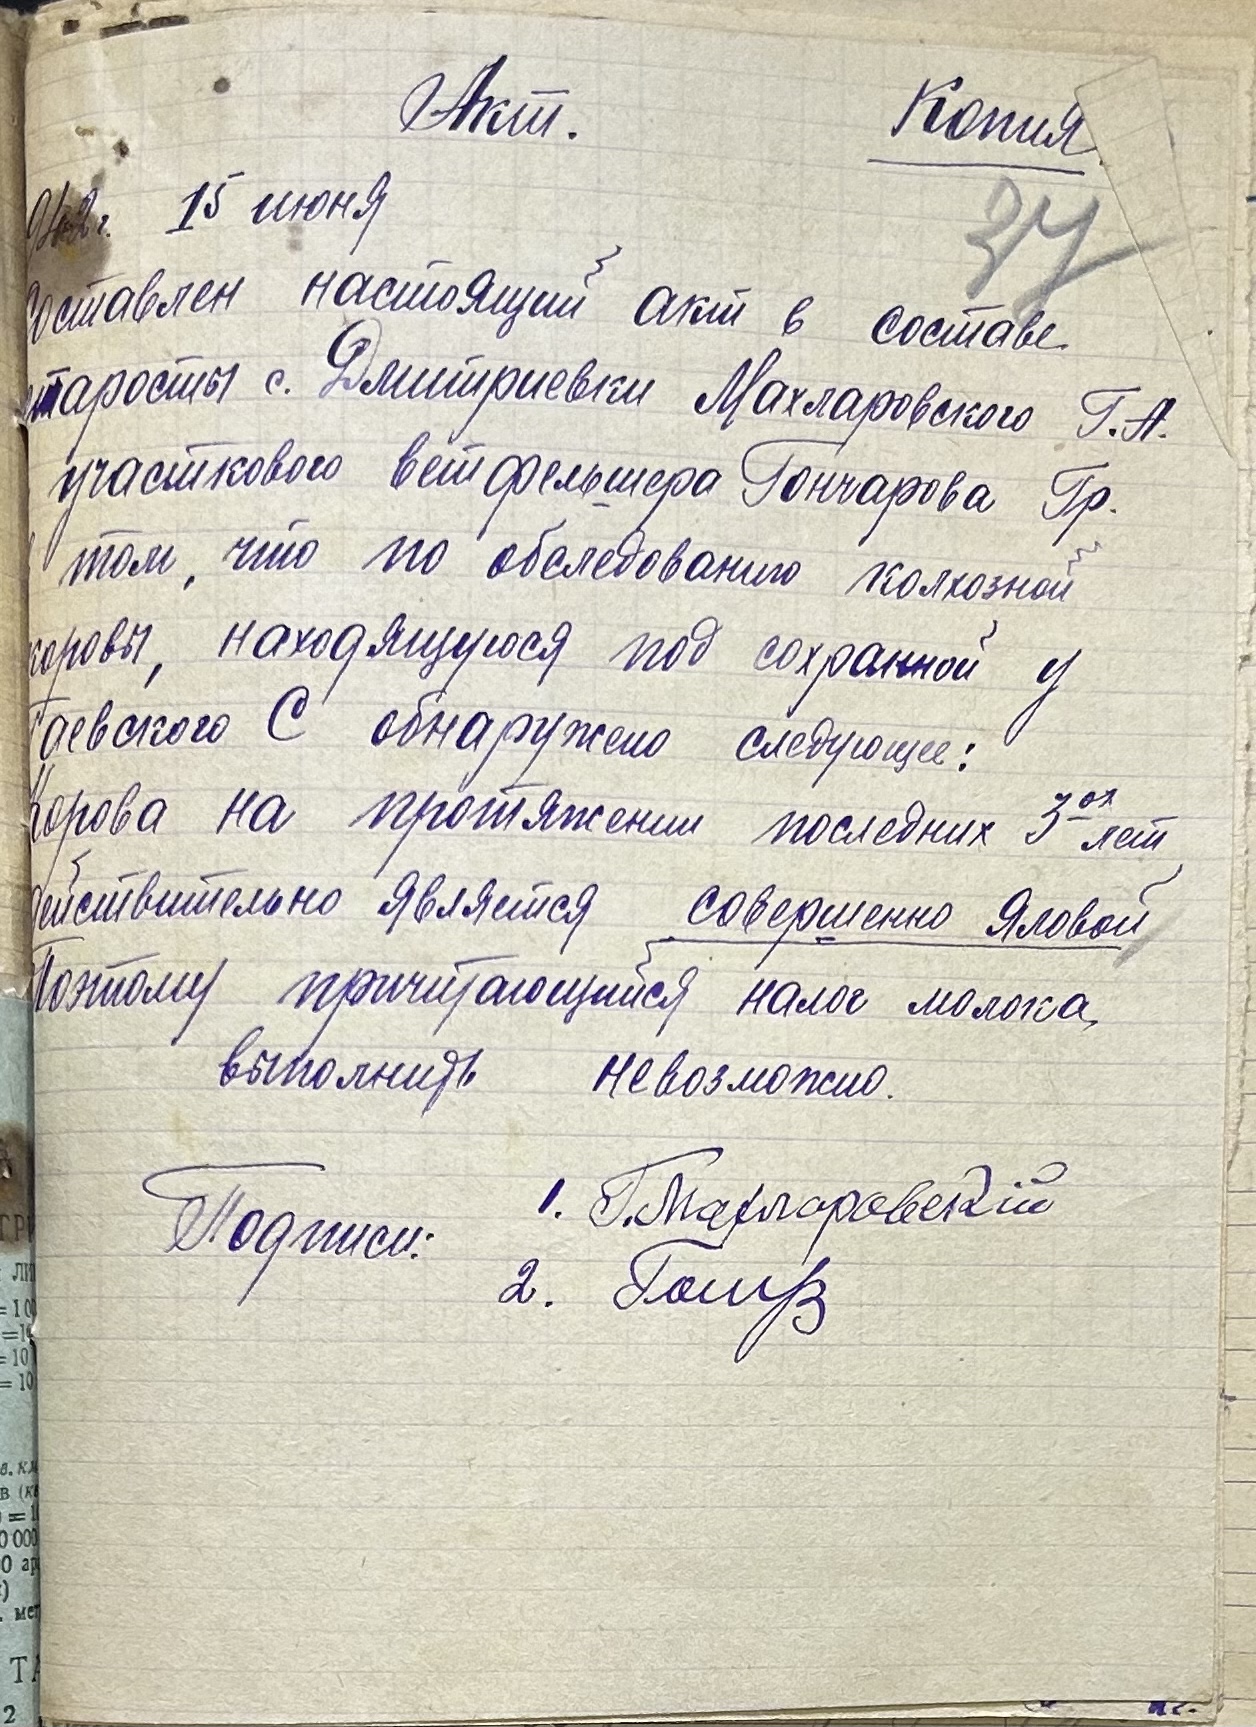 Акт.
Копия
37
942г. 15 июня
Составлен настоящий акт в составе
старосты с. Дмитриевки Махларовского Г.А.
участкового ветфельшера Гончарова Гр.
В том, что по обследованию колхозной
коровы, находящуюся под сохранной у
Гаевского С обнаружено следующее:
Корова на протяжении последних 3ох лет
действительно является совершенно яловой
Поэтому причитающийся налог молока,
выполнить невозможно.
Подписи: 1. Г. Махларовскій
2.